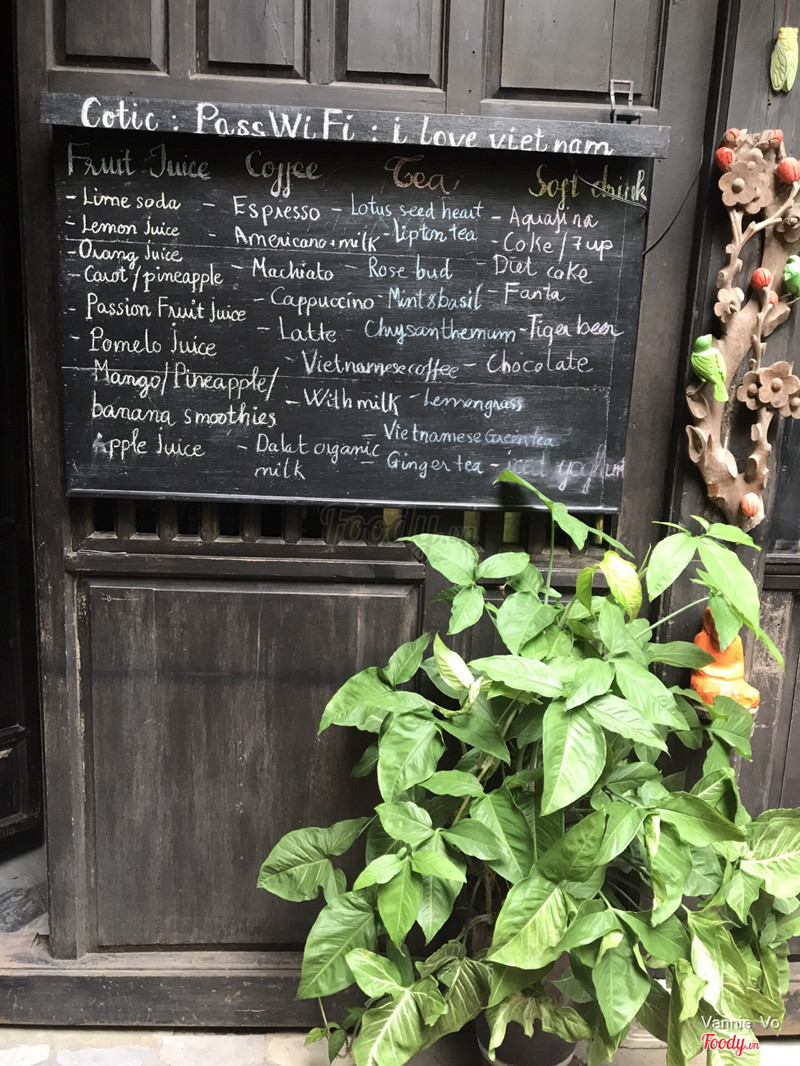 Cotic : PassWiFi : i love vietnam
Fruit Juice Coffee Tea Soft drink
- Lime soda
- Lemon Juice
- Orang Juice
- Carot/pineapple
- Passion Fruit Juice
- Pomelo Juice
- Mango/Pineapple/
banana smoothies
Apple Juice
- Espresso
- Americano + milk
- Machiato
- Cappuccino
- Latte
- Vietnamese coffee
- With milk
- Dalat organic
milk
- Lotus seed heart
- Lipton tea
- Rose bud
- Mint & basil
- Chrysanthemum
- Lemongrass
- Vietnamese Green tea
- Ginger tea
- Aquafina
- Coke / 7 up
- Diet coke
- Fanta
- Tiger beer
- Chocolate
- iced yoghurt
Foody.vn
Vannie Vo
Foody.vn